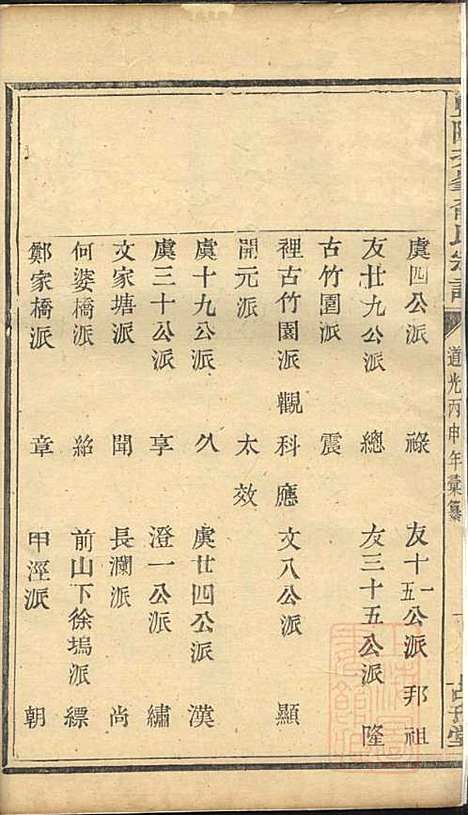 道光丙申年彙纂
虞四公派 祿 友十一五公派 邦祖
友廿九公派 總 友三十五公派 隆
古竹園派 震
裡古竹園派 觀科應 文八公派 顯
開元派 太效
虞十九公派 久 虞廿四公派 漢
虞三十公派 享 澄一公派 繡
文家塘派 聞 長瀾派 尚
何婆橋派 紹 前山下徐塢派 縹
鄭家橋派 章 甲溼派 朝